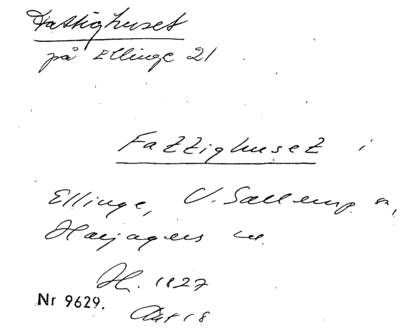 Fattighuset
på Ellinge 21
Fattighuset i
Ellinge, V. Sallerup sn,
Harjagers hd.
H. 1827
Nr 9629.
Akt 18